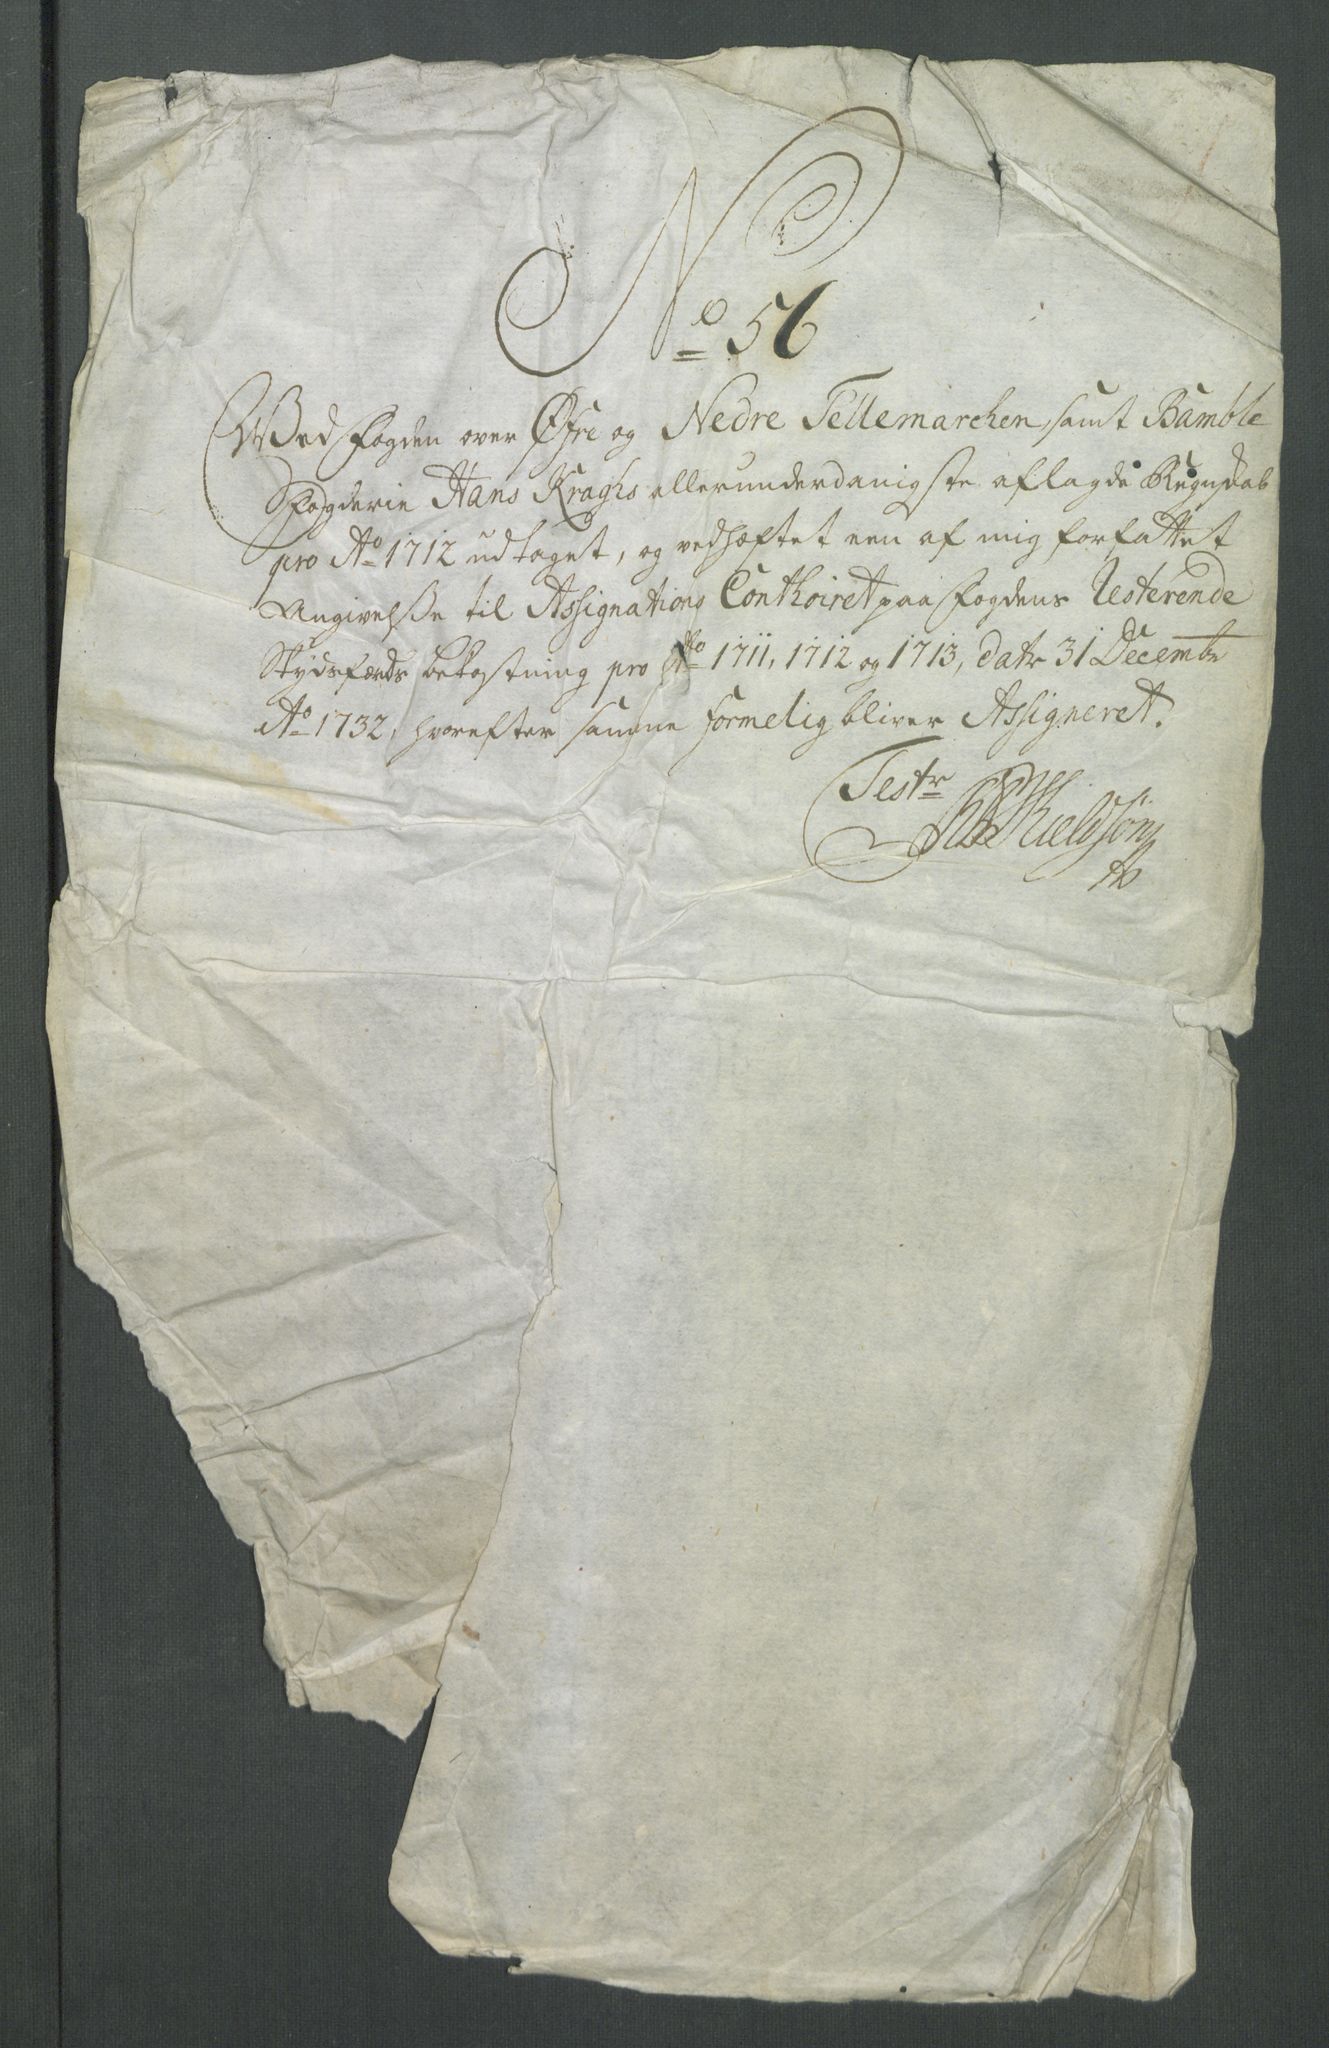 No 56
Wed Fogden over Øfre og Nedre Tellemarchen, samt Bamble
Fogderie Hans Kraghs allerunderdanigste aflagde Regnskab
pro Ao 1712 udtaget, og vedhæftet een af mig forfattet
Angivelsse til Assignations Conthoiret paa Fogdens Resterende
Skydsfærds bekostning pro Ao 1711, 1712 og 1713, datr 31 Decembr
Ao 1732, hvorefter samme formelig bliver Assigneret.
Testr
Kieldsøn